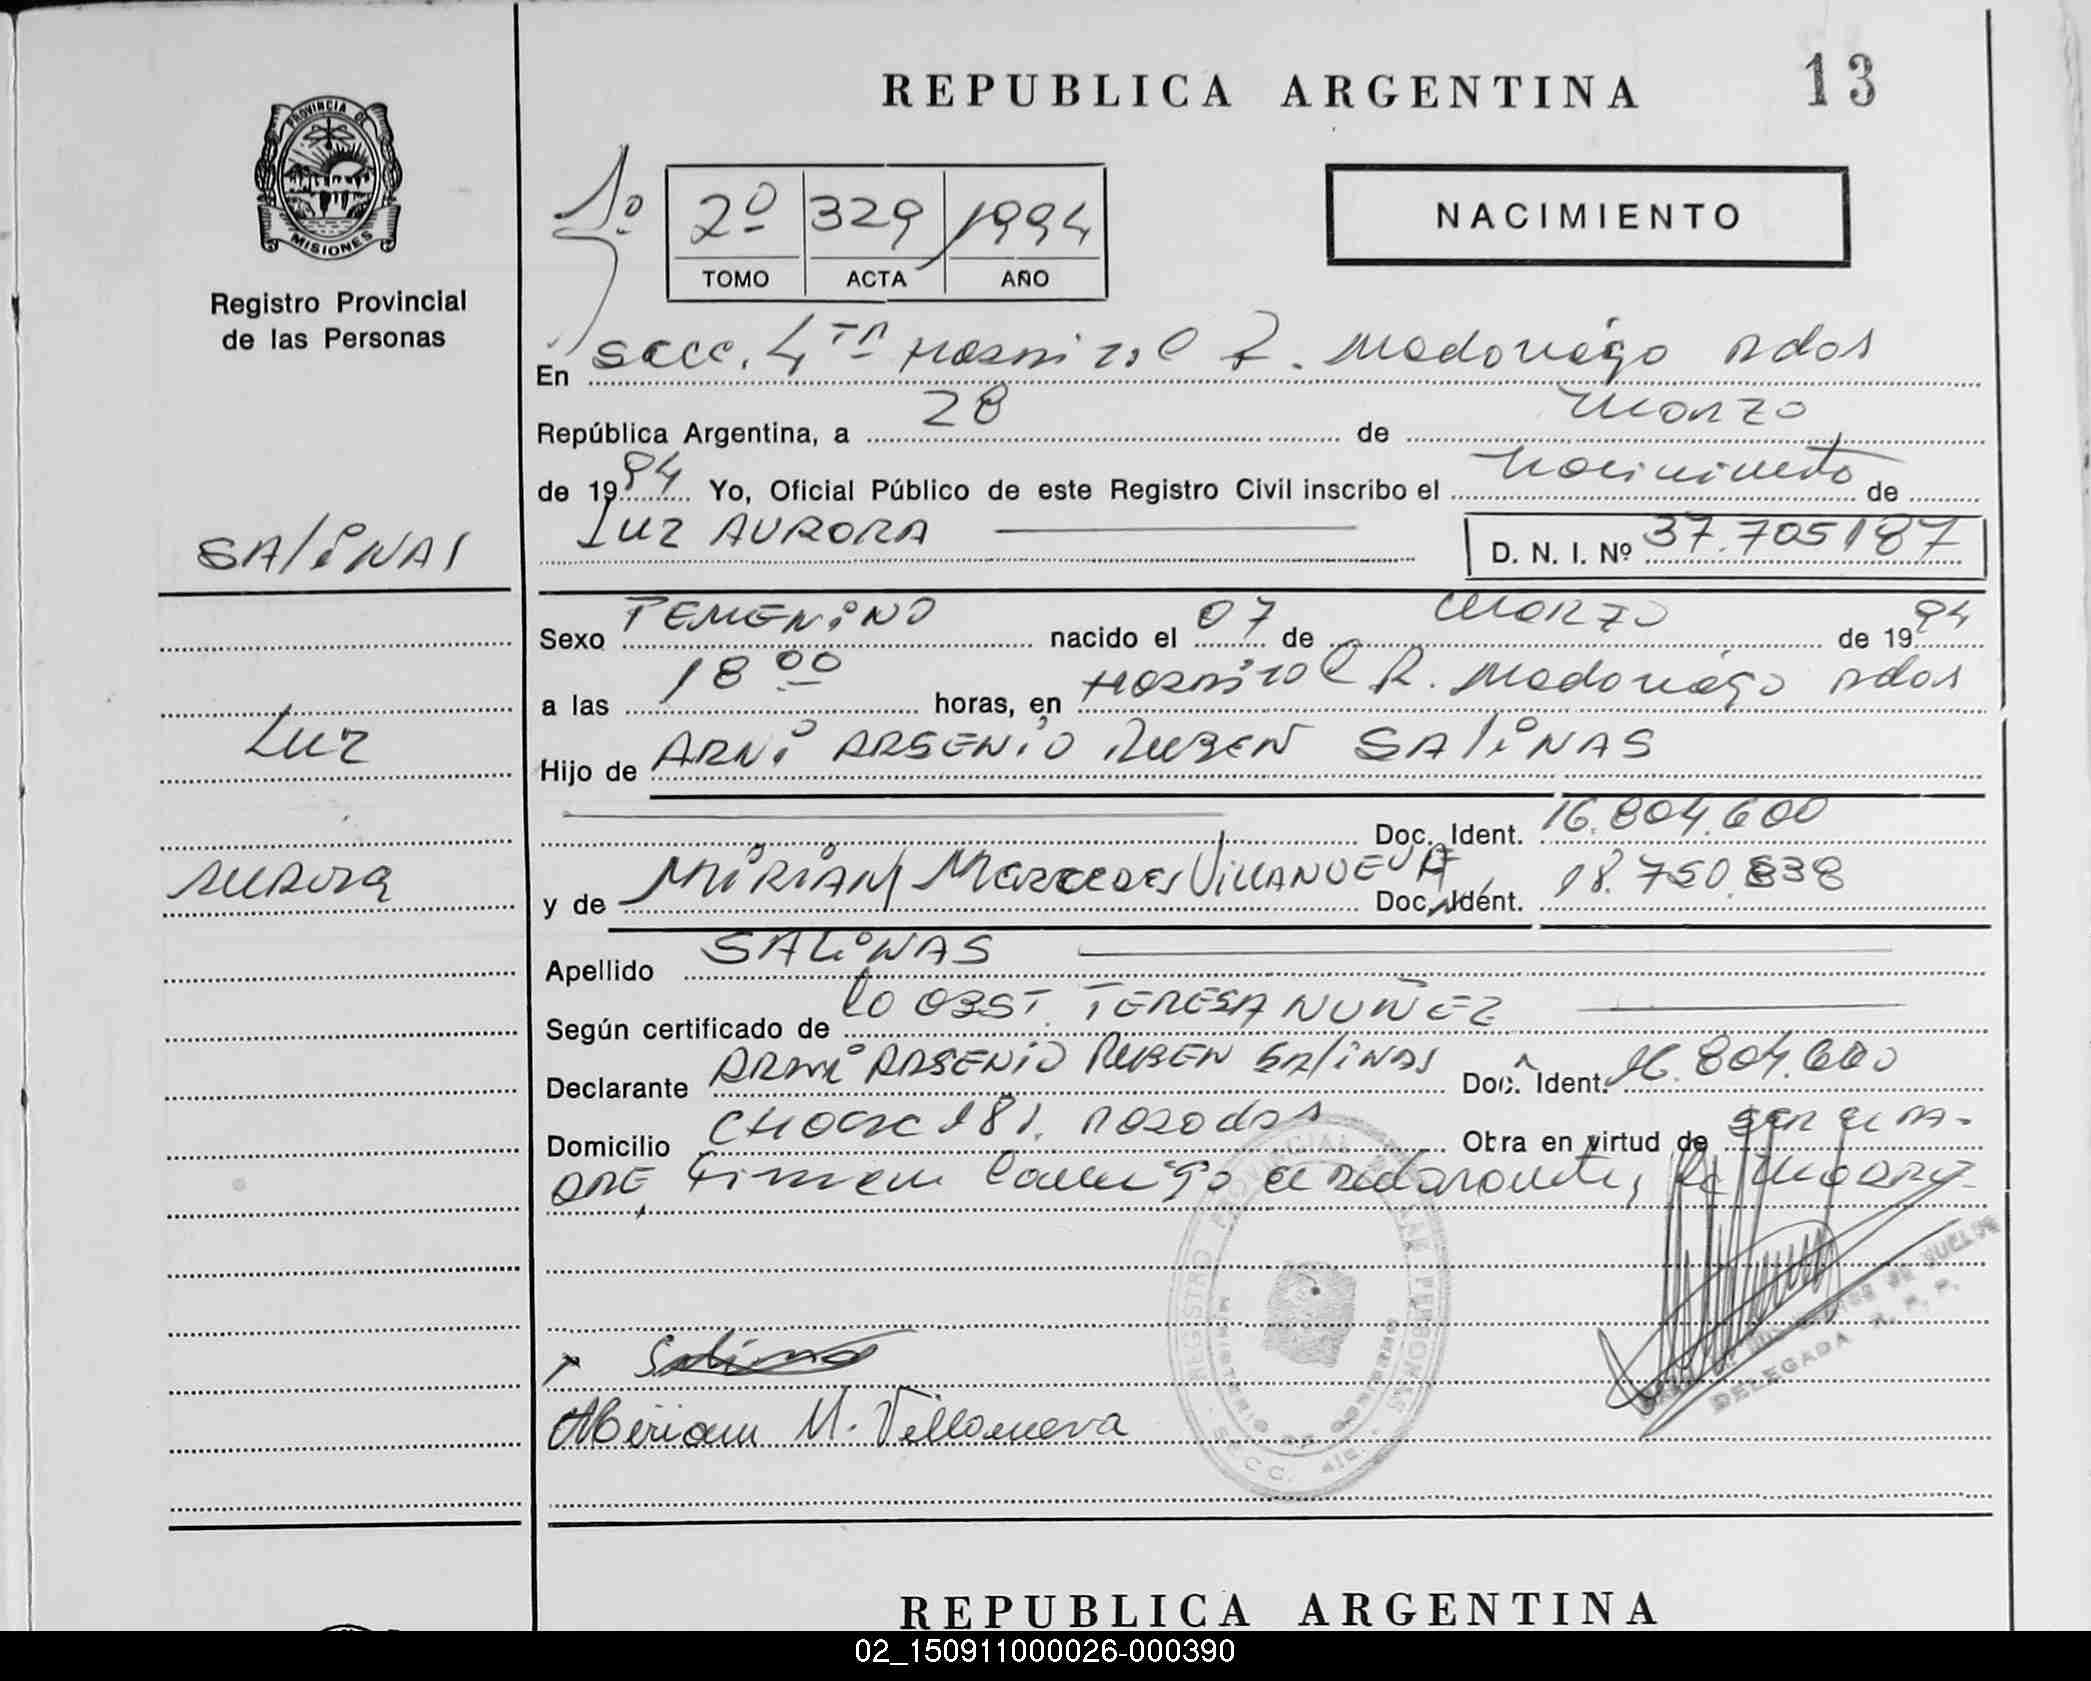 REPUBLICA ARGENTINA
13
PROVINCIA DE
MISIONES
Registro Provincial
de las Personas
1º
2º 329 1994
TOMO ACTA AÑO
NACIMIENTO
En Secc. 4ta Hospital R. Madariaga Pdas
República Argentina, a 28 de Marzo
de 1994 Yo, Oficial Público de este Registro Civil inscribo el Nacimiento de
LUZ AURORA
D. N. I. Nº 37.705187
SALINAS
Sexo FEMENINO nacido el 07 de Marzo de 1994
a las 18 00 horas, en Hospital R. Madariaga Pdas
Luz
Hijo de ARNI ARSENIO RUBEN SALINAS
Doc. Ident. 16.804.600
Aurora
y de MIRIAM MERCEDES VILLANUEVA Doc. Ident. 18.750.838
Apellido SALINAS
Según certificado de la OBST. TERESA NUÑEZ
Declarante ARNI ARSENIO RUBEN SALINAS Doc. Ident. 16.804.600
Domicilio CHACRA 181. Posadas Obra en virtud de SER EL PA-
DRE, Firman conmigo el declarante, la madre
REGISTRO PROVINCIAL DE LAS PERSONAS
MINISTERIO DE GOBIERNO
SECC. 4ta.
DELEGADA R. P. P.
Salinas
Miriam M. Villanueva
REPUBLICA ARGENTINA
02_150911000026-000390